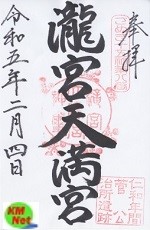 奉拝
瀧宮天満宮
令和五年二月四日
仁和年間
菅公
治所遺跡
KM
Net